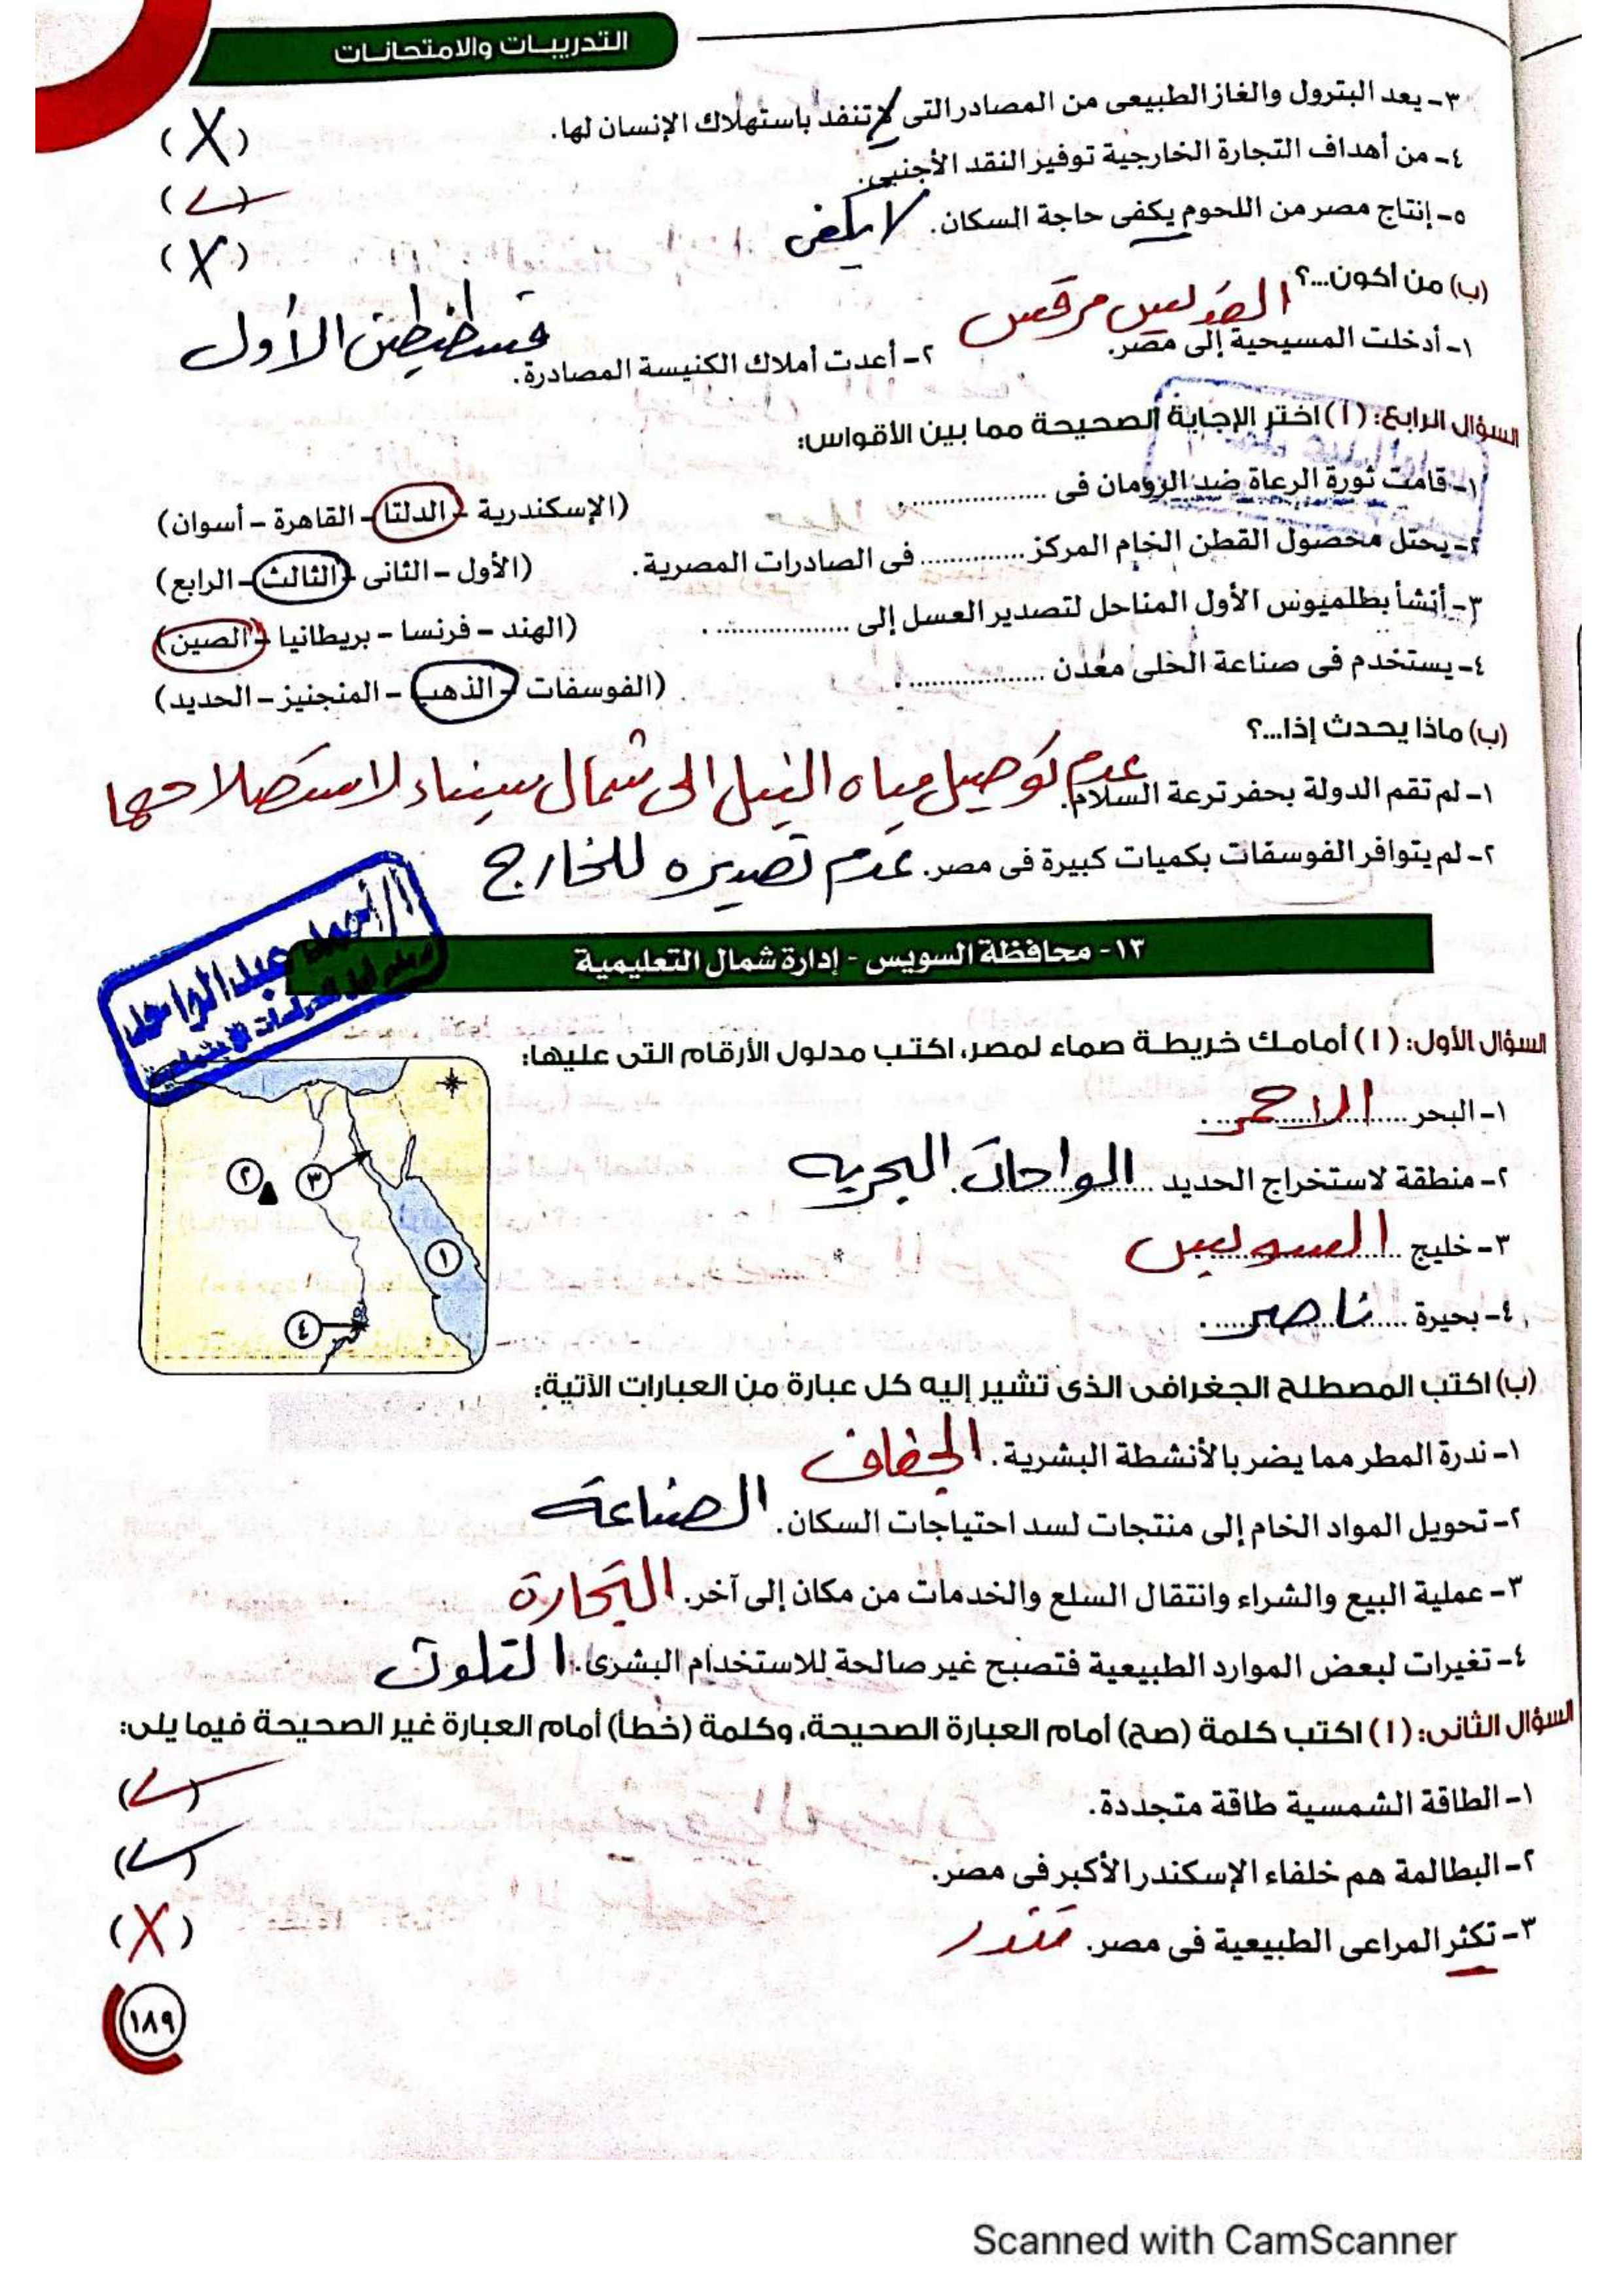 التدريبات والامتحانات
٣- يعد البترول والغاز الطبيعى من المصادر التى لا تنفد باستهلاك الإنسان لها. (X)
٤- من أهداف التجارة الخارجية توفير النقد الأجنبى. (✓)
٥- إنتاج مصر من اللحوم يكفى حاجة السكان. لا يكفى (X)
(ب) من أكون...؟
١- أدخلت المسيحية إلى مصر. القديس مرقس
٢- أعدت أملاك الكنيسة المصادرة. قسطنطين الأول
السؤال الرابع: (أ) اختر الإجابة الصحيحة مما بين الأقواس:
١- قامت ثورة الرعاة ضد الرومان فى .................. (الإسكندرية - الدلتا - القاهرة - أسوان)
٢- يحتل محصول القطن الخام المركز .............. فى الصادرات المصرية. (الأول - الثانى - الثالث - الرابع)
٣- أنشأ بطلميوس الأول المناحل لتصدير العسل إلى .................. (الهند - فرنسا - بريطانيا - الصين)
٤- يستخدم فى صناعة الحلى معدن .................. (الفوسفات - الذهب - المنجنيز - الحديد)
(ب) ماذا يحدث إذا...؟
١- لم تقم الدولة بحفر ترعة السلام. عدم توصيل مياه النيل الى شمال سيناء لاستصلاحها
٢- لم يتوافر الفوسفات بكميات كبيرة فى مصر. عدم تصديره للخارج
أ/ أحمد عبد الواحد
١٣- محافظة السويس - إدارة شمال التعليمية
السؤال الأول: (أ) أمامك خريطة صماء لمصر، اكتب مدلول الأرقام التى عليها:
١- البحر الاحمر
٢- منطقة لاستخراج الحديد الواحات البحريه
٣- خليج السويس
٤- بحيرة ناصر
٢
٣
١
٤
(ب) اكتب المصطلح الجغرافى الذى تشير إليه كل عبارة من العبارات الآتية:
١- ندرة المطر مما يضر بالأنشطة البشرية. الجفاف
٢- تحويل المواد الخام إلى منتجات لسد احتياجات السكان. الصناعة
٣- عملية البيع والشراء وانتقال السلع والخدمات من مكان إلى آخر. التجارة
٤- تغيرات لبعض الموارد الطبيعية فتصبح غير صالحة للاستخدام البشرى. التلوث
السؤال الثانى: (أ) اكتب كلمة (صح) أمام العبارة الصحيحة، وكلمة (خطأ) أمام العبارة غير الصحيحة فيما يلى:
١- الطاقة الشمسية طاقة متجددة. (✓)
٢- البطالمة هم خلفاء الإسكندر الأكبر فى مصر. (✓)
٣- تكثر المراعى الطبيعية فى مصر. تندر (X)
١٨٩
Scanned with CamScanner